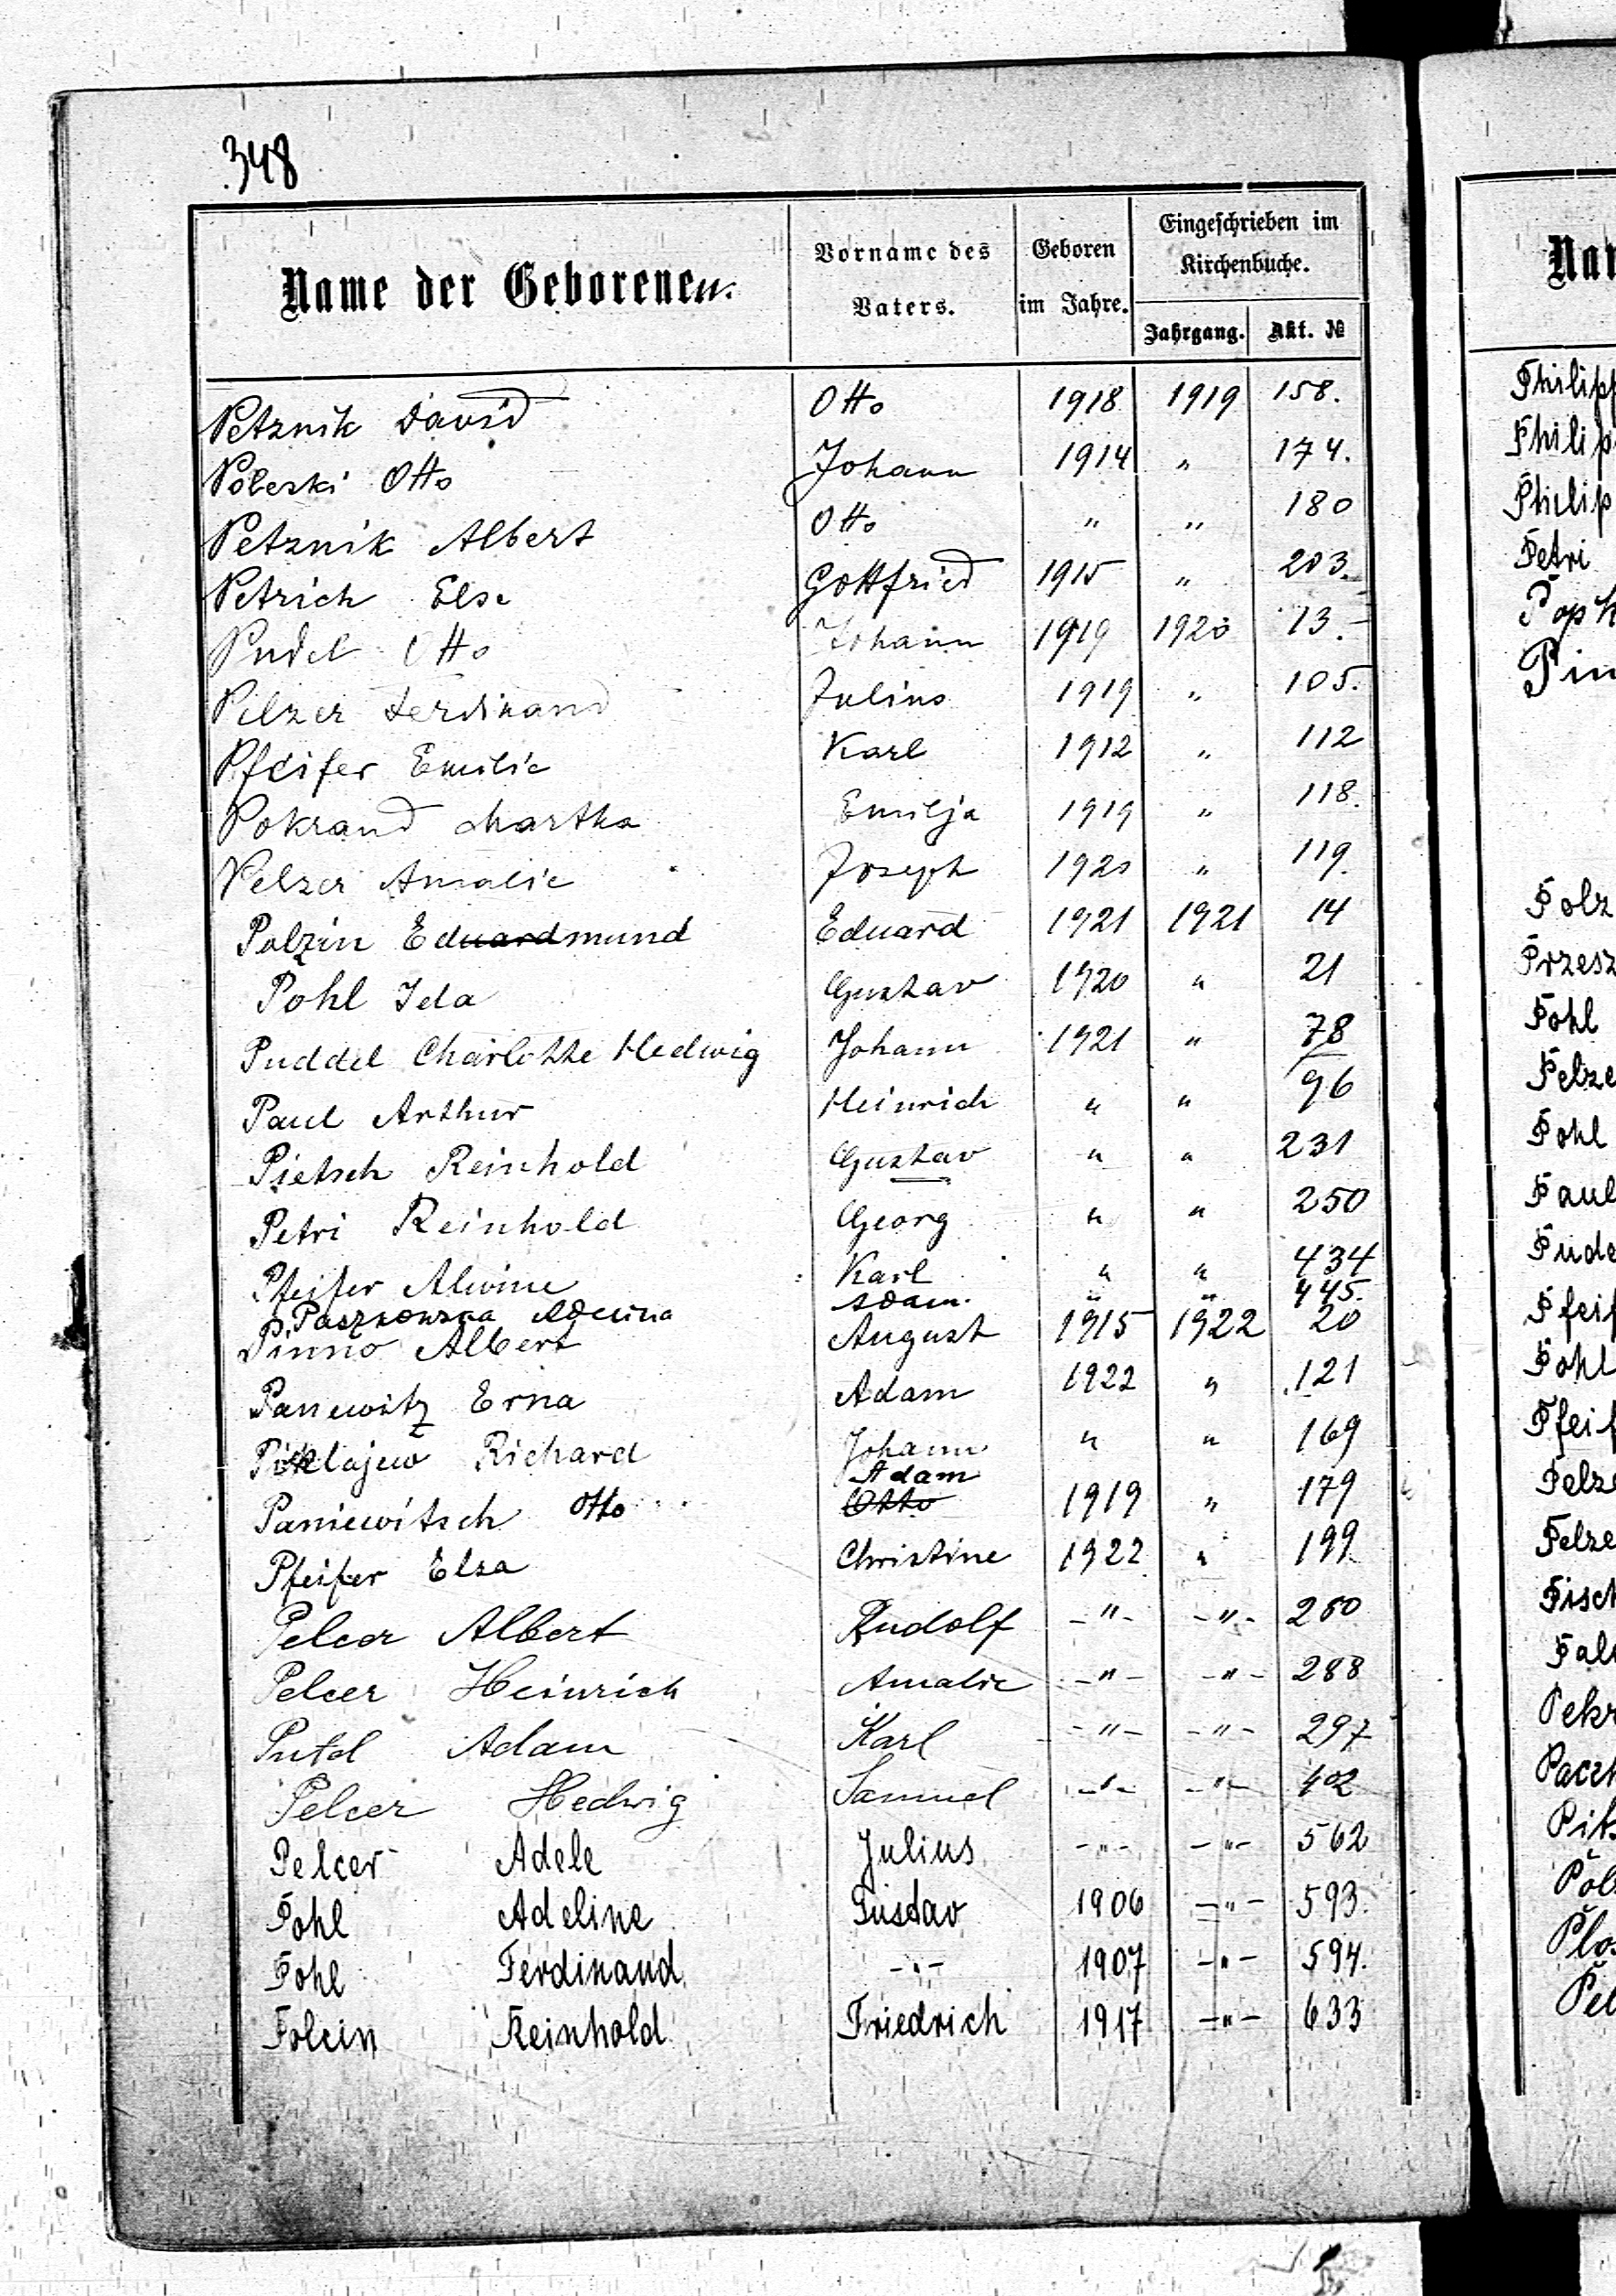 348
Name der Geborenen.
Vorname des Vaters.
Geboren im Jahre.
Eingeschrieben im Kirchenbuche.
Jahrgang.
Akt. №
Petznik David Otto 1918 1919 158.
Poleski Otto Johann 1914 " 174.
Petznik Albert Otto " " 180
Petrich Else Gottfried 1915 " 203.
Pudel Otto Johann 1919 1920 13.
Pelzer Ferdinand Julius 1919 " 105.
Pfeifer Emilie Karl 1912 " 112
Pokrand Martha Emilja 1919 " 118.
Pelzer Amalie Joseph 1920 " 119.
Polzin Eduardmund Eduard 1921 1921 14
Pohl Ida Gustav 1920 " 21
Puddel Charlotte Hedwig Johann 1921 " 78
Paul Arthur Heinrich " " 96
Pietsch Reinhold Gustav " " 231
Petri Reinhold Georg " " 250
Pfeifer Alwine Karl " " 434
Adam " " 445.
Pinno Albert August 1915 1922 20
Panewitz Erna Adam 1922 " 121
Richard Johann " " 169
Adam
Paniewitsch Otto Otto 1919 " 179
Pfeifer Elsa Christine 1922 " 199
Pelcer Albert Rudolf -"- -"- 260
Pelcer Heinrich Amalie -"- -"- 288
Putel Adam Karl -"- -"- 297
Pelcer Hedwig Samuel -"- -"- 402
Pelcer Adele Julius -"- -"- 562
Pohl Adeline Gustav 1906 -"- 593.
Pohl Ferdinand -"- 1907 -"- 594.
Polcin Reinhold Friedrich 1917 -"- 633
Nam
Philipp
Philip
Philip
Petri
Pin
Polz
Przesz
Pohl
Pelze
Pohl
Paul
Pude
Pfeif
Pohl
Pfeif
Pelze
Pelze
Fisch